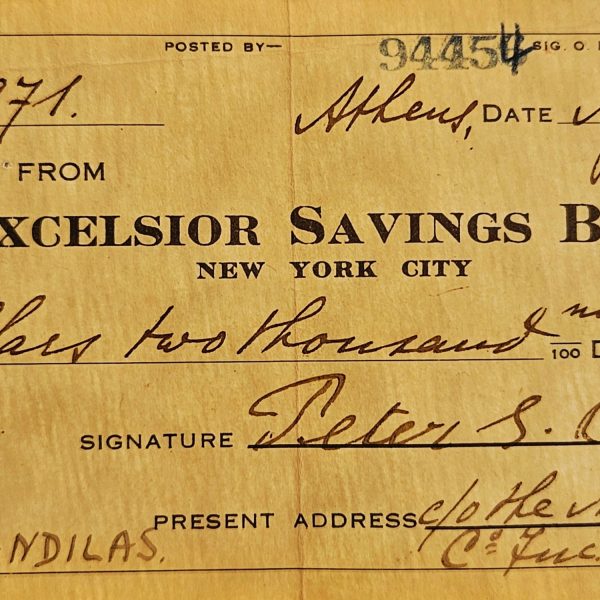 POSTED BY— 94454 SIG. O.
71. Athens, DATE
FROM
XCELSIOR SAVINGS B
NEW YORK CITY
lars two thousand /100 D
SIGNATURE Peter S.
PRESENT ADDRESS c/o the
NDILAS. Co. Inc.